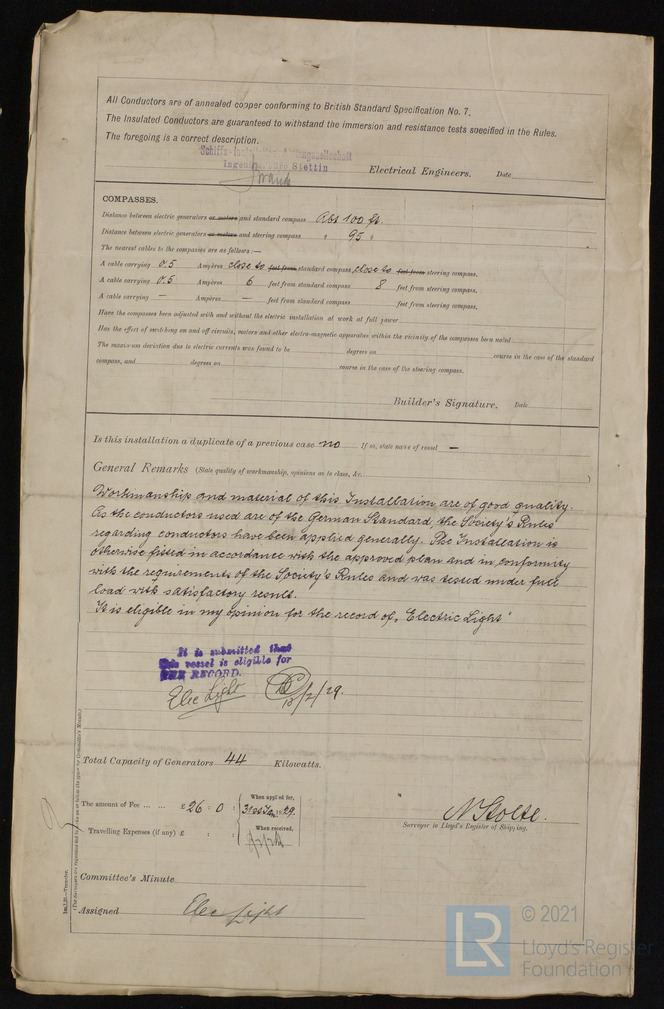 All Conductors are of annealed copper conforming to British Standard Specification No. 7.
The Insulated Conductors are guaranteed to withstand the immersion and resistance tests specified in the Rules.
The foregoing is a correct description.
Stettin
Electrical Engineers. Date
COMPASSES.
Distance between electric generators or motors and standard compass Abt 100 ft.
Distance between electric generators or motors and steering compass " 95 "
The nearest cables to the compasses are as follows:—
A cable carrying 0.5 Ampères close to feet from standard compass, close to feet from steering compass.
A cable carrying 0.5 Ampères 6 feet from standard compass 8 feet from steering compass.
A cable carrying — Ampères — feet from standard compass feet from steering compass.
Have the compasses been adjusted with and without the electric installation at work at full power
Has the effect of switching on and off circuits, motors and other electro-magnetic apparatus within the vicinity of the compasses been noted
The maximum deviation due to electric currents was found to be degrees on course in the case of the standard
compass, and degrees on course in the case of the steering compass.
Builder's Signature. Date
Is this installation a duplicate of a previous case no If so, state name of vessel —
General Remarks (State quality of workmanship, opinions as to class, &c.
Workmanship and material of this Installation are of good quality.
As the conductors used are of the German Standard, the Society's Rules
regarding conductors have been applied generally. The Installation is
otherwise fitted in accordance with the approved plan and in conformity
with the requirements of the Society's Rules and was tested under full
load with satisfactory result.
It is eligible in my opinion for the record of „Electric Light"
It is submitted that
this vessel is eligible for
THE RECORD.
Elec Light /2/29.
Total Capacity of Generators 44 Kilowatts.
The amount of Fee ... ... £ 26 : 0 : When applied for, 31st Jan 1929.
Travelling Expenses (if any) £ : : When received,
N Stolte.
Surveyor to Lloyd's Register of Shipping.
Committee's Minute
Assigned Elec Light
LR © 2021
Lloyd's Register
Foundation